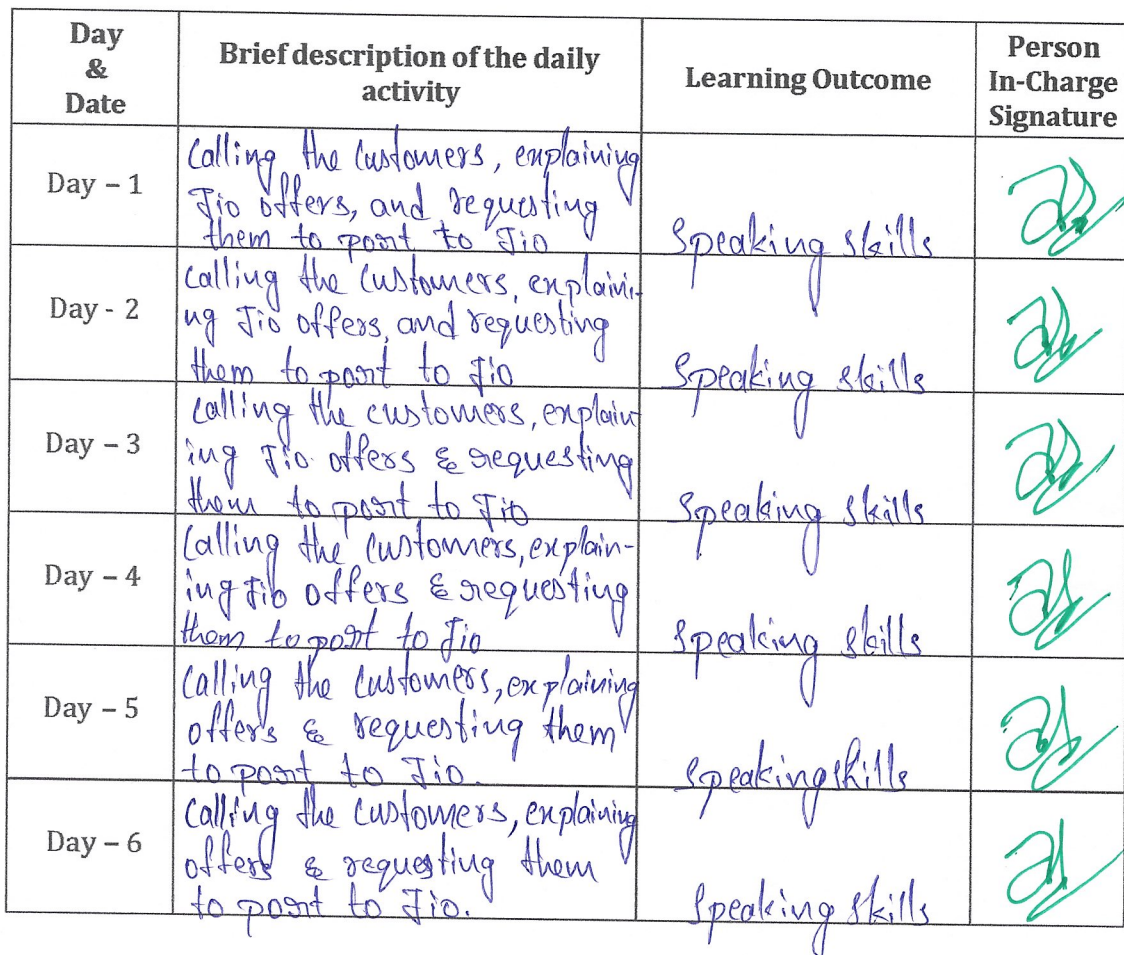 Day
&
Date
Brief description of the daily
activity
Learning Outcome
Person
In-Charge
Signature
Day – 1
Calling the Customers, explaining
Jio offers, and requesting
them to port to Jio
Speaking skills
Day - 2
Calling the Customers, explaini-
ng Jio offers, and requesting
them to port to Jio
Speaking skills
Day – 3
Calling the customers, explain-
ing Jio offers & requesting
them to port to Jio
Speaking skills
Day – 4
Calling the Customers, explain-
ing Jio offers & requesting
them to port to Jio
Speaking skills
Day – 5
Calling the Customers, explaining
offers & requesting them
to port to Jio.
Speaking skills
Day – 6
Calling the Customers, explaining
offers & requesting them
to port to Jio.
Speaking skills